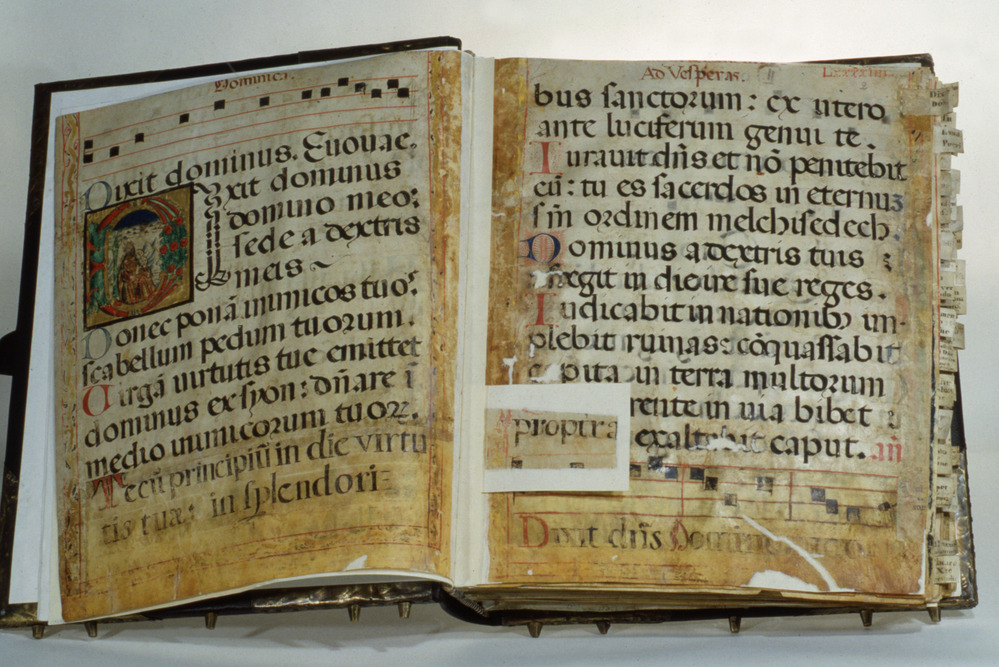 Dominica.
Dixit dominus. Euouae.
Ixit dominus
domino meo:
sede a dextris
meis
Donec ponā inimicos tuoꝝ
scabellum pedum tuorum.
Uirgā uirtutis tue emittet
dominus ex syon: dn̄are ī
medio inimicorum tuoꝝ.
Tecū principiū in die virtu
tis tuæ: in splendori
Ad Vesperas.
bus sanctorum: ex utero
ante luciferum genui te.
Iurauit dn̄s et nō penitebit
eū: tu es sacerdos in eternuz
sm̄ ordinem melchisedech.
Dominus a dextris tuis :
cōfregit in die ire sue reges.
Iudicabit in nationibꝫ im-
plebit ruinas: cōquassabit
capita in terra multorum
rente in uia bibet :
propterea exaltabit caput. añ
Dixit dn̄s Domino